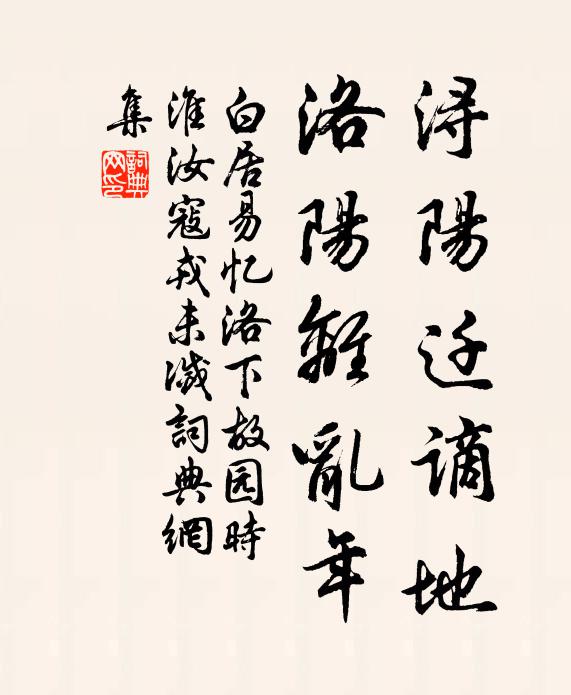 浔陽迁谪地
洛陽離亂年
白居易忆洛下故园時
淮汝寇戎未滅詞典網
集
詞典网印